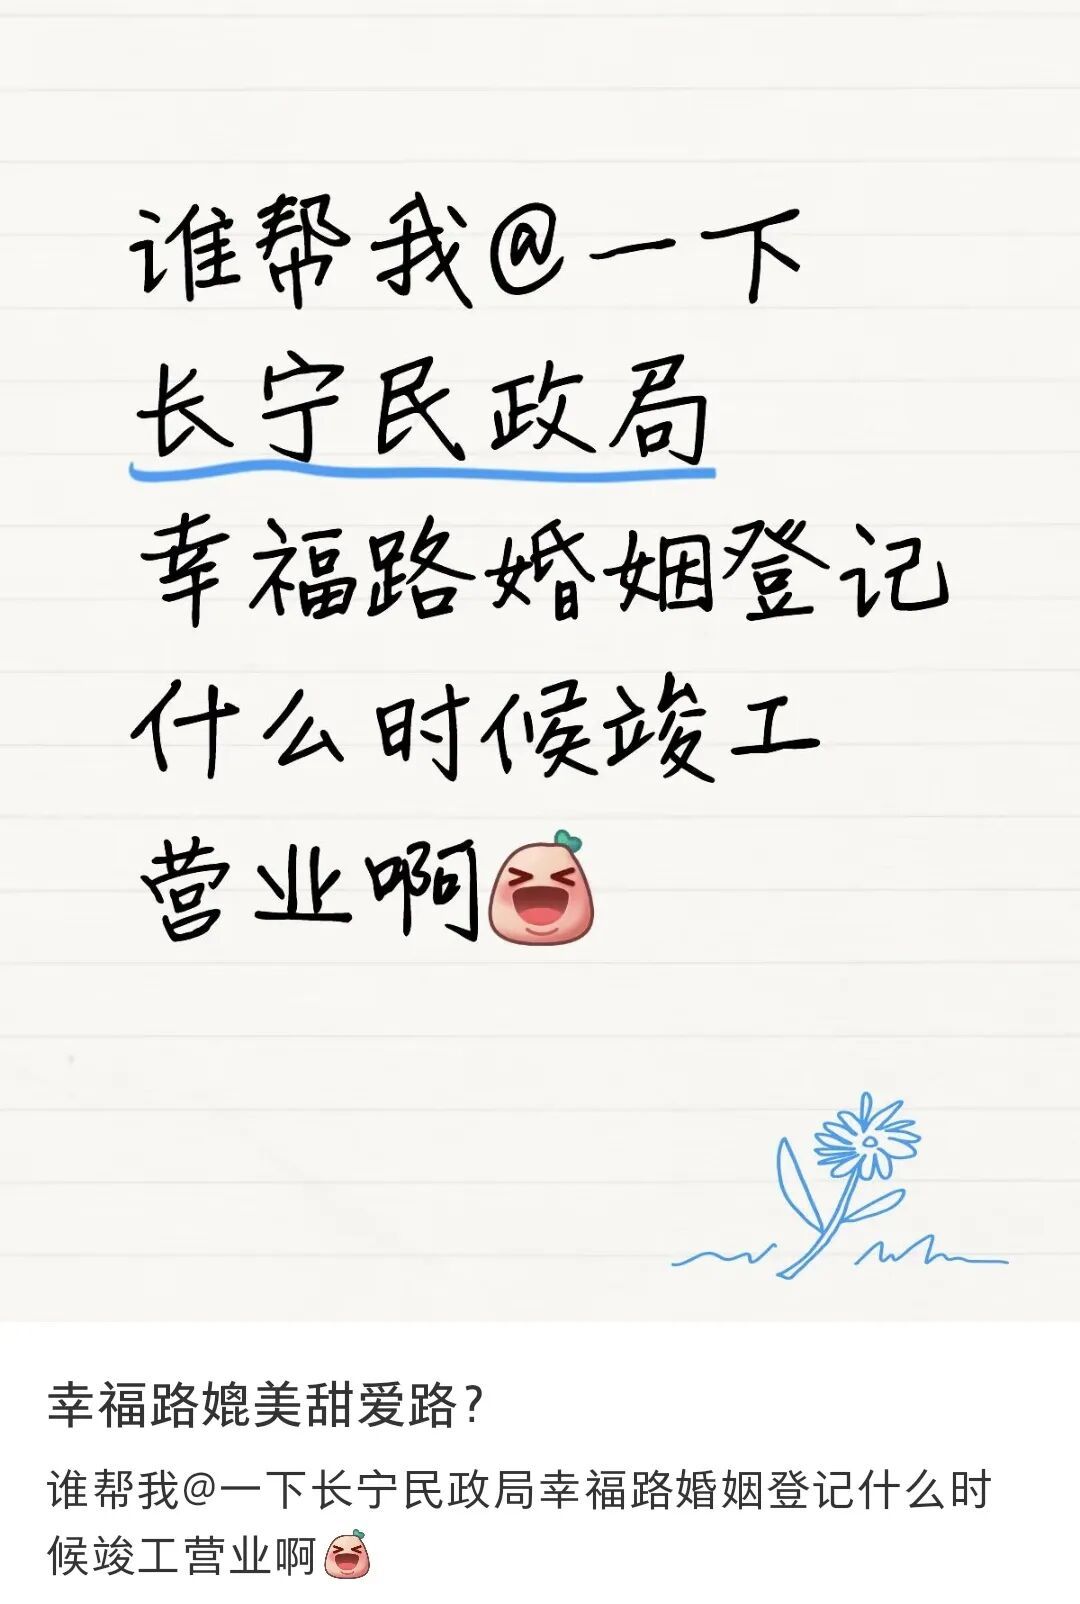 谁帮我@一下
长宁民政局
幸福路婚姻登记
什么时候竣工
营业啊
幸福路媲美甜爱路?
谁帮我@一下长宁民政局幸福路婚姻登记什么时
候竣工营业啊